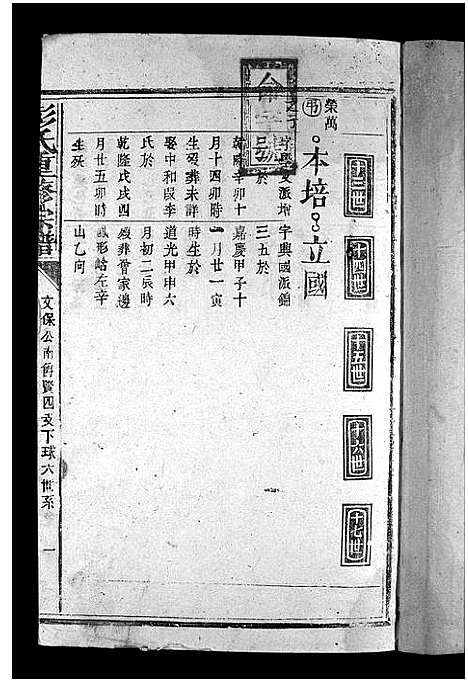 十三世
十四世
十五世
十六世
十七世
榮萬
本培
立國
字興國派錦
三五於
嘉慶甲子十
一月廿一寅
時生於
道光甲申六
月初二辰時
葬曾家邊
形蛤左辛
山乙向
派增
於
乾隆辛卯十
月十四卯時
生歿葬未詳
娶中和段李
氏於
乾隆戊戌四
月廿五卯時
生死
氏重修宗譜
文保公南舊賢四支下球六世系
一